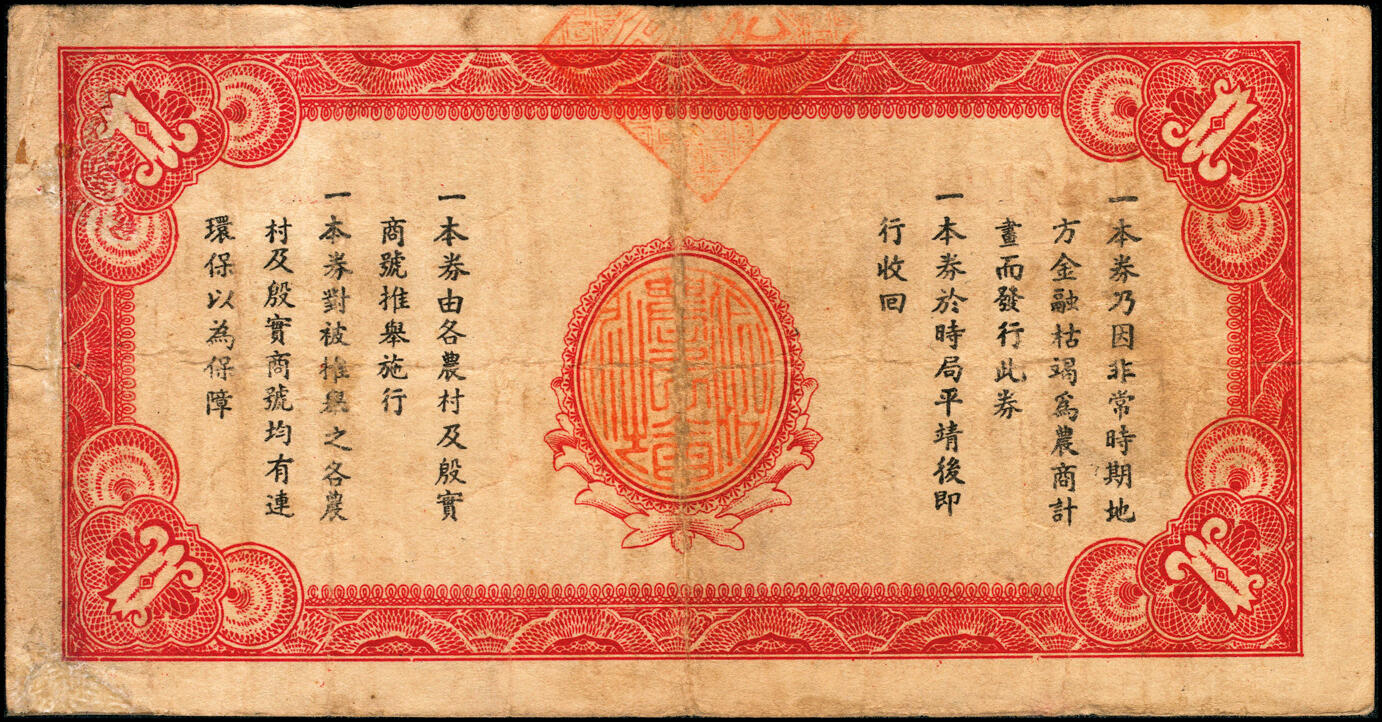 一本券乃因非常時期地
方金融枯竭爲農商計
畫而發行此券
一本券於時局平靖後即
行收回
一本券由各農村及殷實
商號推舉施行
一本券對被推舉之各農
村及殷實商號均有連
環保以為保障